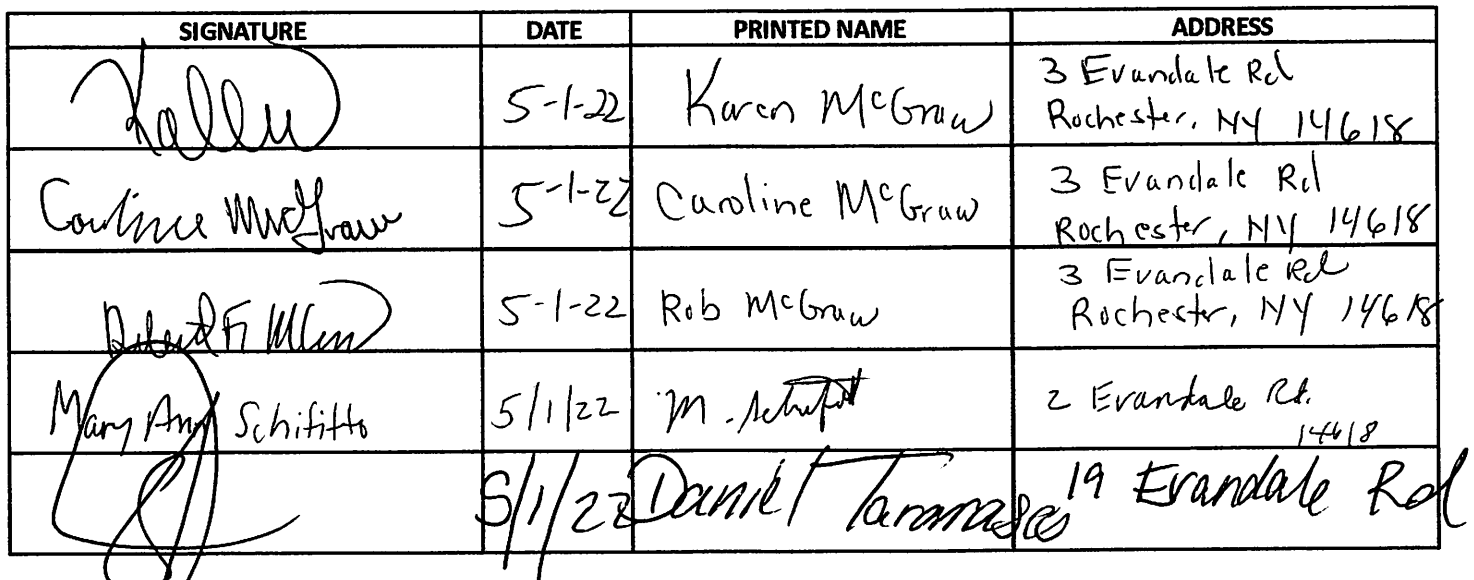 SIGNATURE DATE PRINTED NAME ADDRESS
5-1-22 Karen McGraw 3 Evandale Rd
Rochester, NY 14618
Caroline McGraw 5-1-22 Caroline McGraw 3 Evandale Rd
Rochester, NY 14618
5-1-22 Rob McGraw 3 Evandale Rd
Rochester, NY 14618
Mary Ann Schifitto 5/1/22 M. Schifitto 2 Evandale Rd.
14618
5/1/22 Daniel 19 Evandale Rd